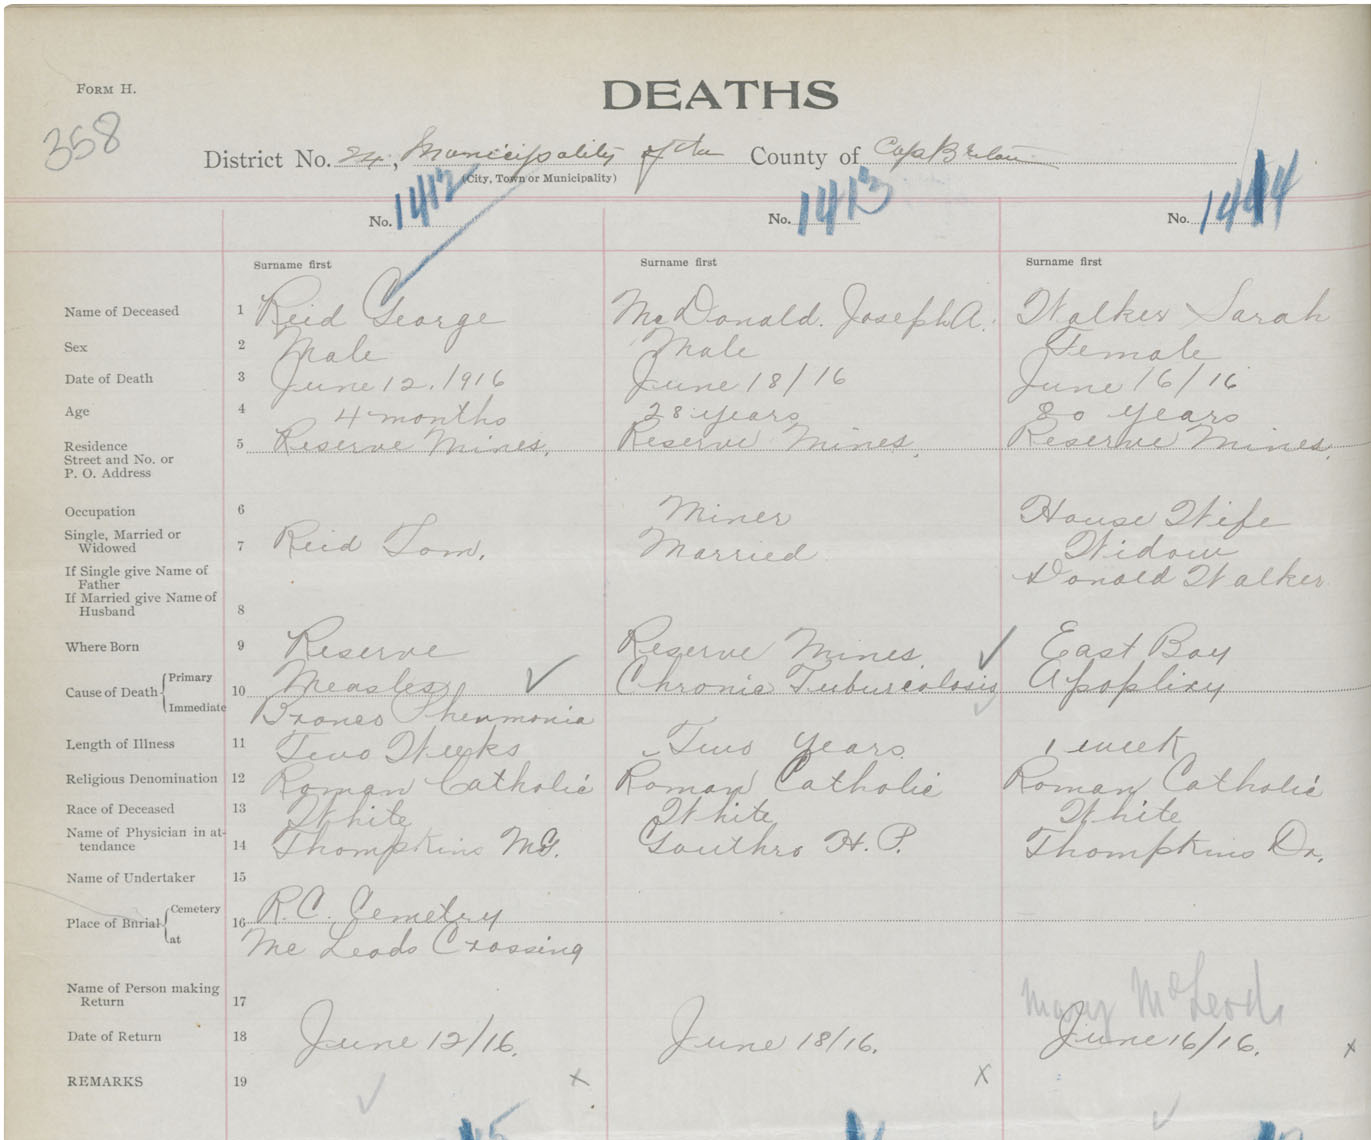 FORM H.
DEATHS
358
District No. 24, Municipality of the County of Cape Breton
(City, Town or Municipality)
No. 1412 No. 1413 No. 1414
Surname first Surname first Surname first
Name of Deceased 1 Reid George McDonald. Joseph A. Walker Sarah
Sex 2 Male Male Female
Date of Death 3 June 12, 1916 June 18/16 June 16/16
Age 4 4 months 28 years 80 years
Residence 5 Reserve Mines. Reserve Mines. Reserve Mines.
Street and No. or
P. O. Address
Occupation 6 Miner House Wife
Single, Married or
Widowed 7 Reid Tom. Married Widow
If Single give Name of
Father Donald Walker
If Married give Name of
Husband 8
Where Born 9 Reserve Reserve Mines. East Bay
Cause of Death { Primary 10 Measles Chronic Tuburcolosis Apoplixy
Immediate Bronco Phenmonia
Length of Illness 11 Two Weeks Two years 1 week
Religious Denomination 12 Roman Catholic Roman Catholic Roman Catholic
Race of Deceased 13 White White White
Name of Physician in at-
tendance 14 Thompkins M.G. Gouthro H. P. Thompkins Dr.
Name of Undertaker 15
Place of Burial { Cemetery 16 R.C. Cemetry
at Mc Leods Crossing
Name of Person making
Return 17 Mary McLeod
Date of Return 18 June 12/16. June 18/16. June 16/16.
REMARKS 19 x x x